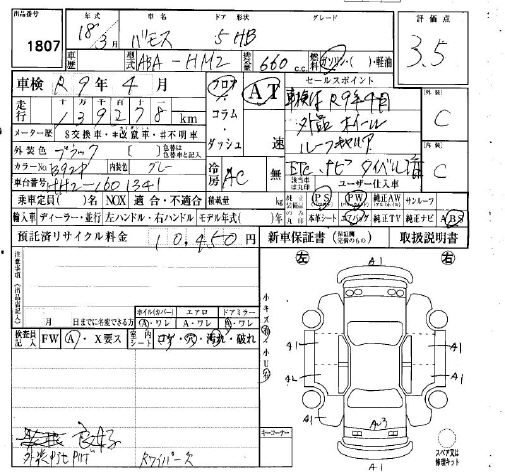 出品番号 1807
年式 18年3月
車名 バモス
ドア 形状 5HB
グレード
評価点 3.5
車歴
型式 ABA-HM2
排気量 660 c.c.
燃料 ガソリン・( )・軽油
車検 R9年4月
走行 十万 万 千 百 十 一 139278 km
メーター歴 $交換車・*改ざん車・#不明車
外装色 ブラック
カラーNo. B92P 内装色 グレー
車台番号 HM2-1601341
フロア・コラム・ダッシュ
AT 速
冷房 AC 無
セールスポイント
車検付R9年4月
外品ホイール
ルーフキャリア
ETC ナビ タイベル済
外装 C
内装 C
ユーザー仕入車
乗車定員( )名 NOX 適合・不適合 積載量 kg
PS PW 純正AW サンルーフ
輸入車 ディーラー・並行 左ハンドル・右ハンドル モデル年式( )年
本革シート エアバック 純正TV 純正ナビ ABS
預託済リサイクル料金 10,450円
新車保証書 (保証欄完備のもの) 取扱説明書
注意事項(出品店記入)
月 日までに名変できる方
ホイル(カバー) エアロ ドアミラー
A・ワレ A・ワレ A・ワレ
検査員記入 FW A・X要ス
室内シート コゲ・穴・汚れ・破れ
良好
Rワイパーズ
左 右
小キズ 小U
A1
A1 A1
A1 A1
A2 A1
A1
キーコーナー
スペア又は修理キット